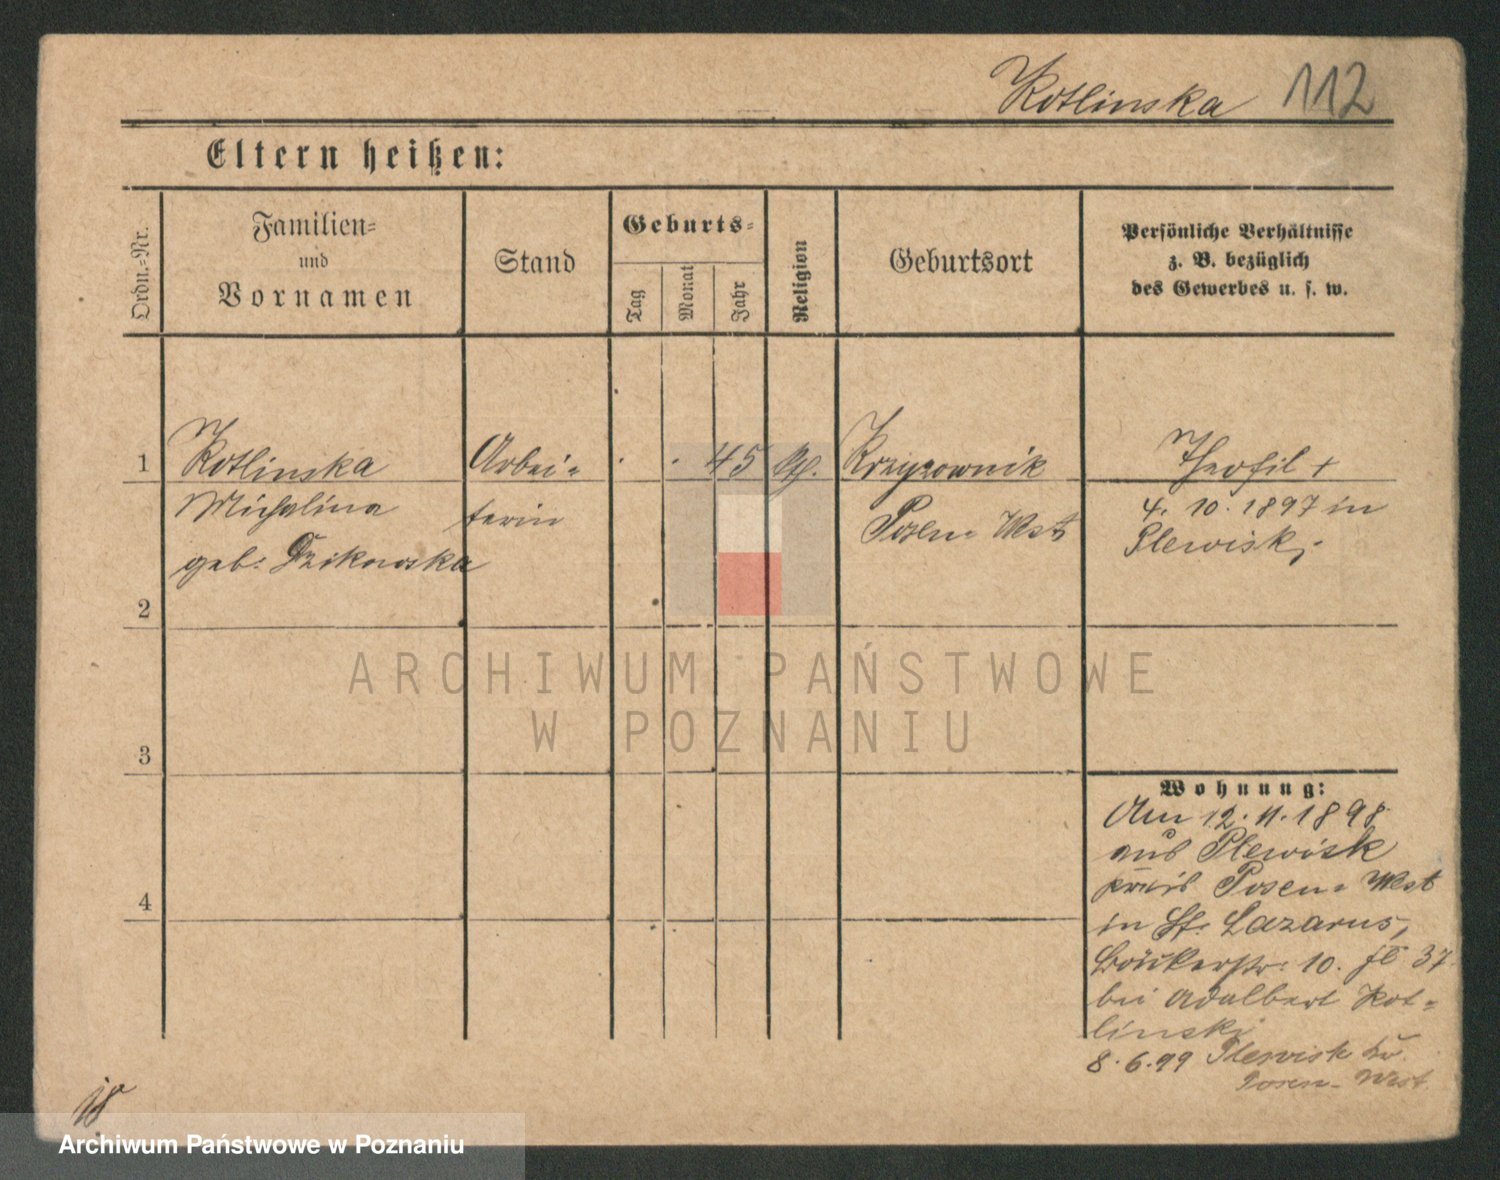 Kotlinska 112
Eltern heißen:
Ordn.-Nr.
Familien-
und
Vornamen
Stand
Geburts-
Tag
Monat
Jahr
Religion
Geburtsort
Persönliche Verhältnisse
z. B. bezüglich
des Gewerbes u. s. w.
1 Kotlinska Arbei- 45 Krzyzownik Theofil +
Michalina terin Posen-West 4. 10. 1897 in
geb. Dzikowska Plewisk.
2
3
4
Wohnung:
Am 12. 11. 1898
aus Plewisk
Kreis Posen-West
in St. Lazarus,
10. 37.
bei Adalbert Kot-
linski
8.6.99 Plewisk Kr.
Posen-West.
ARCHIWUM PAŃSTWOWE
W POZNANIU
Archiwum Państwowe w Poznaniu